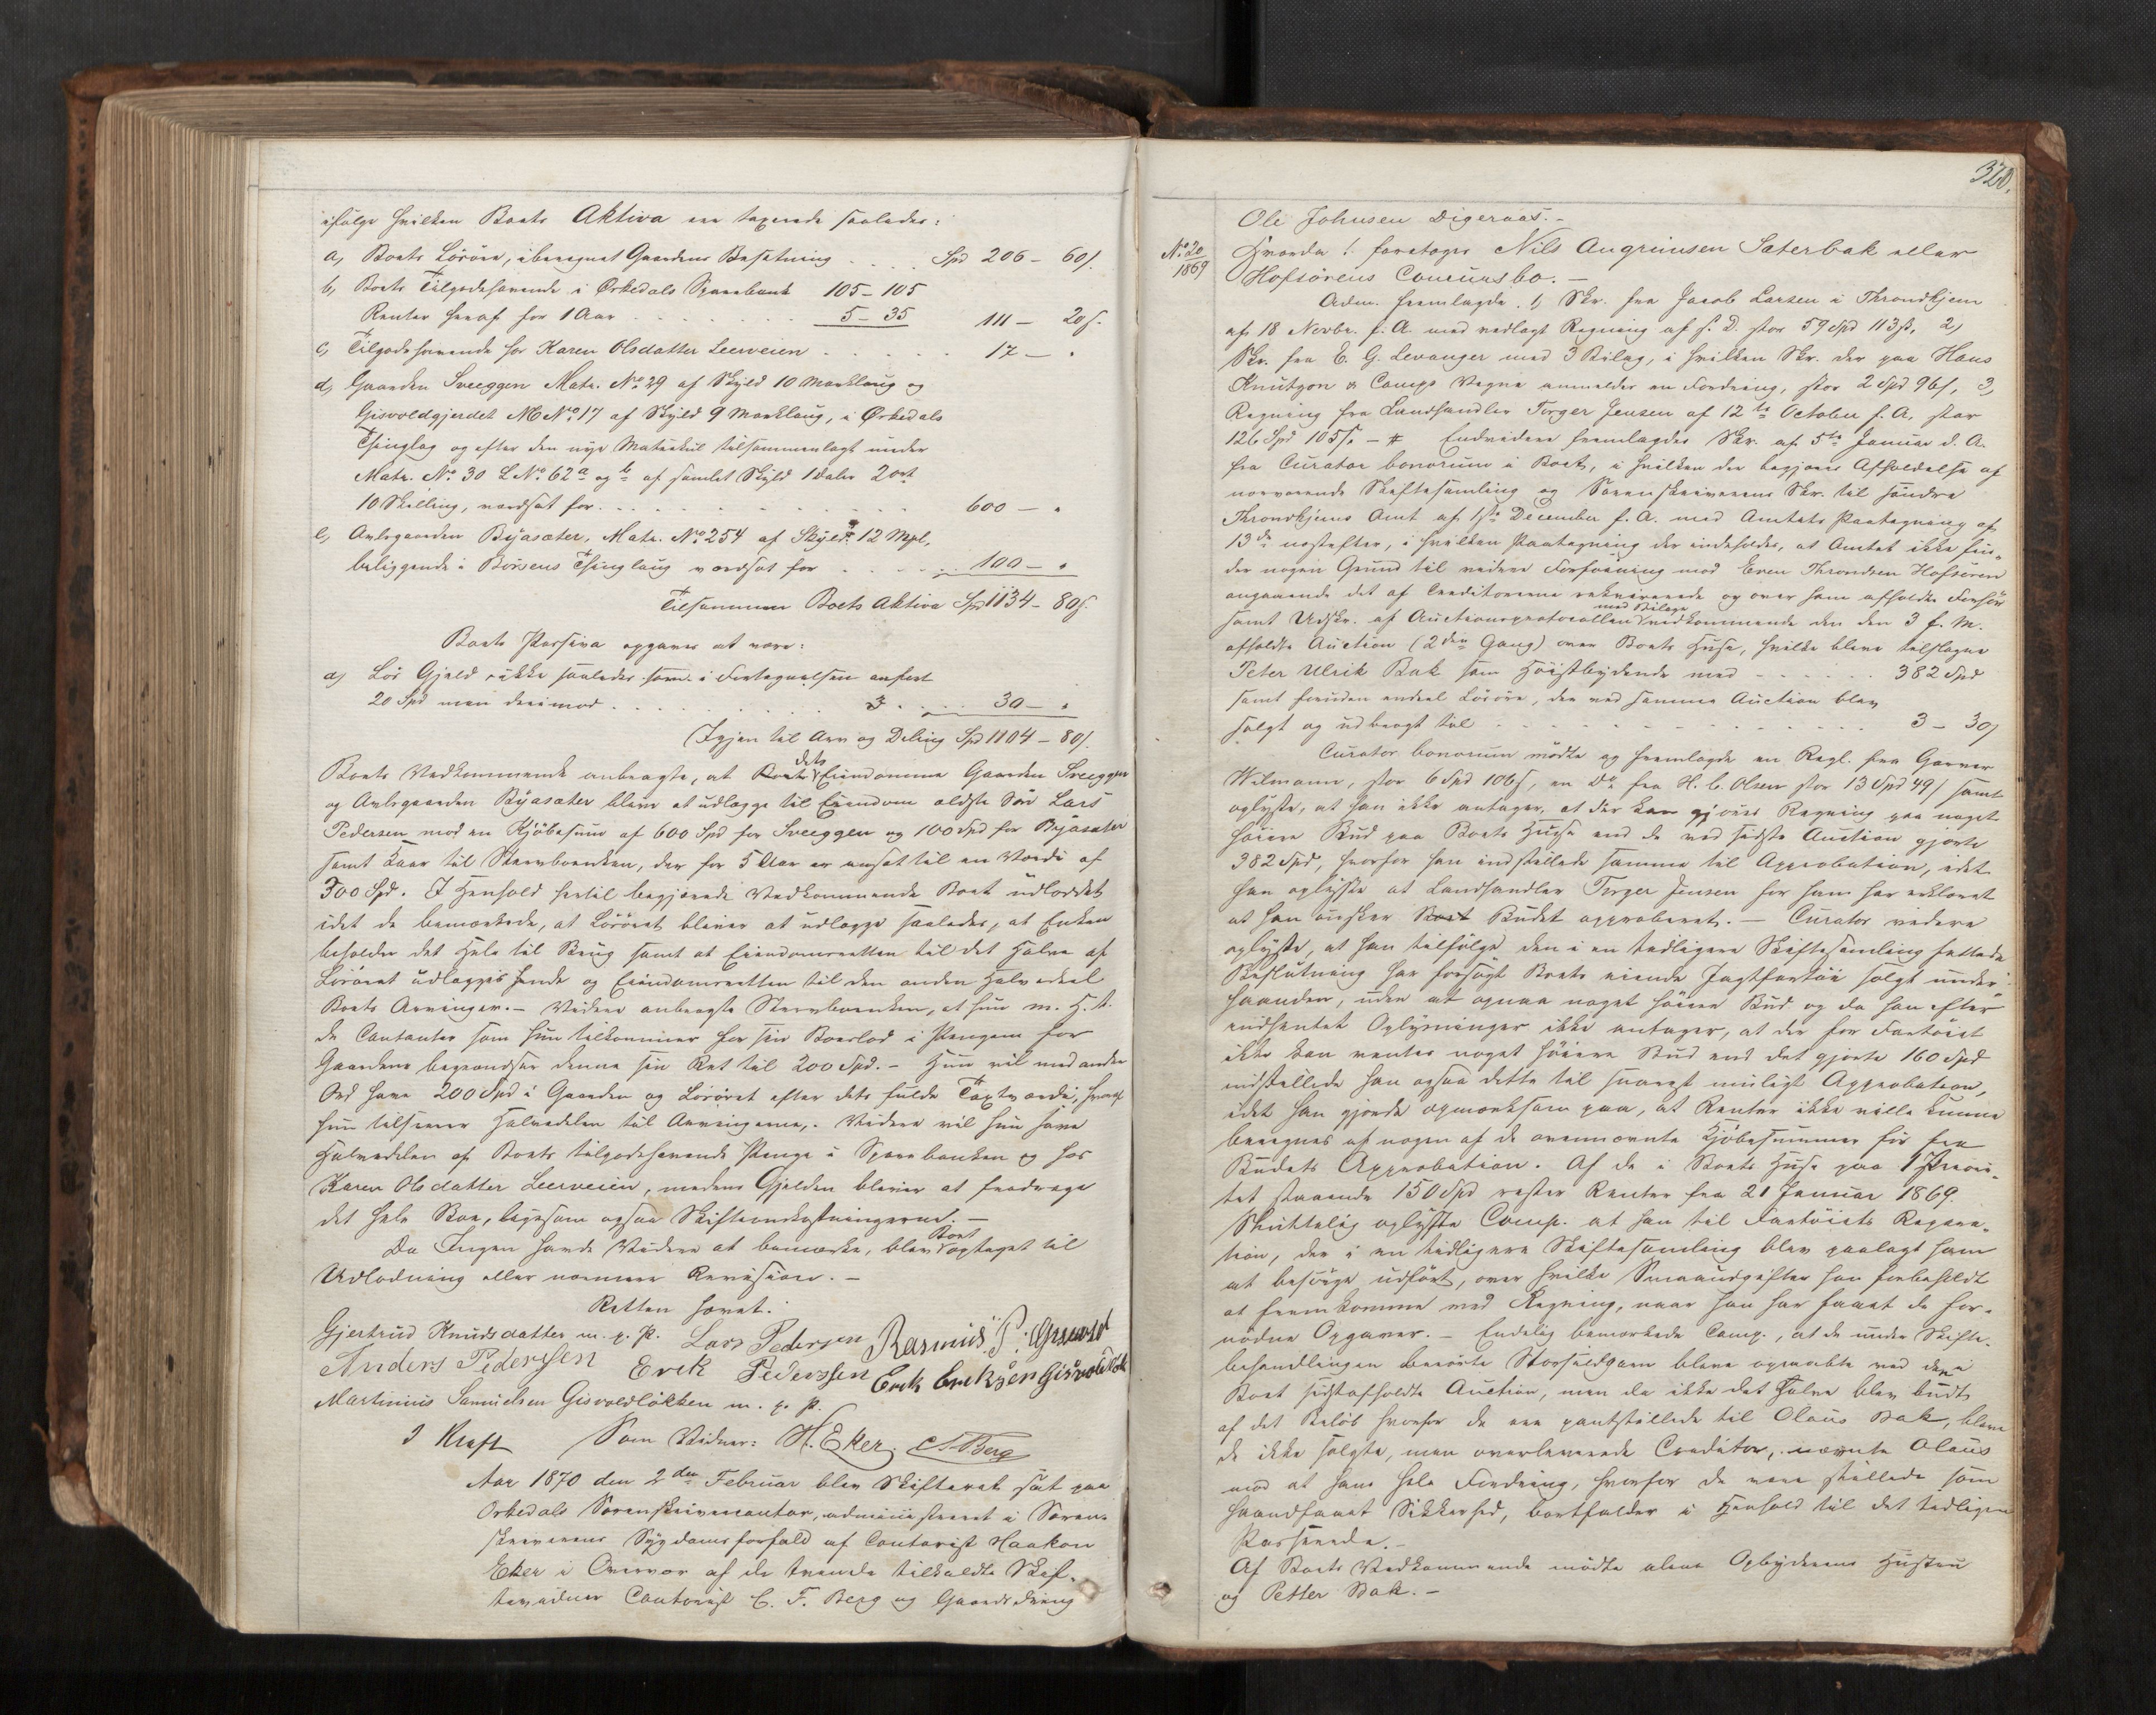 ifølge hvilken Boets Aktiva ere taxerede saaledes:
a, Boets Lösöre, iberegnet Gaardens Besætning . . . . Spd 206 – 60ſ.
b, Boets Tilgodehavende i Ørkedals Sparebank 105 – 105
Renter heraf for 1 Aar . . . . . 5 – 35 111 – 20ſ.
c, Tilgodehavende hos Karen Olsdatter Leerveien . . . . . 17 – "
d, Gaarden Sveeggen Matr. No 29 af Skyld 10 Marklaug og
Gisvoldgjerdet M No 17 af Skyld 9 Marklaug, i Ørkedals
Thinglag og efter den nye Matrikul tilsammenlagt under
Matr. No 30 L No 62a og b af samlet Skyld 1 daler 2 ort
10 Skilling, værdsat for . . . . . 600 – "
e, Avlsgaarden Byásæter, Matr. No 254 af Skyld 12 Mpl,
beliggende i Börsens Thinglaug værdsat for . . . . 100 – "
Tilsammen Boets Aktiva Spd 1134 – 80ſ.
Boets Passiva opgaves at være:
a) Lös Gjeld, ikke saaledes som i Fortegnelsen anført
20 Spd men derimod . . . . . 30 – "
Igjen til Arv og Deling Spd 1104 – 80ſ.
Boets Vedkommende anbragte, at Boets dets Eiendomme Gaarden Sveeggen
og Avlsgaarden Byasæter bliver at udlægge til Eiendom ældste Sön Lars
Pedersen mod en Kjöbesum af 600 Spd for Sveeggen og 100 Spd for Byásæter
samt Kaar til Stervboenken, der for 5 Aar er ansat til en Værdi af
300 Spd. I Henhold hertil begjærede Vedkommende Boet udloddet
idet de bemærkede, at Lösöret bliver at udlægge saaledes, at Enken
beholder det Hele til Brug samt at Eiendomsretten til det Halve af
Lösöret udlægges hende og Eiendomsretten til den anden Halvedeel
Boets Arvinger. – Videre anbragte Stervboenken, at hun m. H. t.
de Contanter som hun tilkommer for sin Boeslod i Pengene for
Gaardene begrændser denne sin Ret til 200 Spd. – Hun vil med andre
Ord have 200 Spd i Gaarden og Lösöret efter dets fulde Taxtværdi, hvoraf
hun tilsiver Halvedelen til Arvingerne,. Videre vil hun have
Halvedelen af Boets tilgodehavende Penge i Sparebanken og hos
Karen Olsdatter Leerveien, medens Gjelden bliver at fradrage
det hele Boe, ligesom ogsaa Skifteomkostningerne. –
Da Ingen havde Videre at bemærke, blev Boet optaget til
Udlodning eller nærmere Revision. –
Retten hævet.
Gjertrud Knudsdatter m. p. P. Lars Pedersen Rasmus P. Gisvold
Anders Pederssen Erik Pederssen Erik Eriksen Gisvold
Martinius Samuelsen Gisvoldlökken m. p. P.
J Kraft Som Vidner: H. Eker. C F Berg
Aar 1870 den 2den Februar blev Skifteret sat paa
Orkedals Sorenskrivercontor, administreret i Soren-
skriverens Sygdomsforfald af Contorist Haakon
Eker i Overvær af de tvende tilkaldte Skif-
tevidner Contorist C. F. Berg og Gaardsdreng
320.
Ole Johnsen Digeraas. –
No 20
1869
Hvorda: foretoges Nils Angrimsen Sæterbak eller
Hofsörens Concursbo. –
Adm. fremlagde. 1, Skr. fra Jacob Larsen i Throndhjem
af 18 Novbr. f. A. med vedlagt Regning af s. D. stor 59 Spd 113ſ, 2,
Skr. fra E. G. Levanger med 3 Bilag, i hvilken Skr. der paa Hans
Knutzon & Comps Vegne anmeldes en Fordring, stor 2 Spd 96ſ, 3,
Regning fra Landhandler Torger Jensen af 12te October f. A. stor
126 Spd 105ſ. – # Endvidere fremlagdes Skr. af 5te Januar d. A.
fra Curator bonorum i Boet, i hvilken der begjæres Afholdelse af
nærværende Skiftesamling og Sorenskriverens Skr. til söndre
Throndhjems Amt af 1ste December f. A. med Amtets Paategning af
13de næstefter, i hvilken Paategning der indeholdes, at Amtet ikke fin-
der nogen Grund til videre Forføining mod Even Throndsen Hofsören
angaaende det af Creditorerne rekvirerede og over ham afholdte Forhör
samt Udskr. af Auctionsprotocollen med Bilage vedkommende den den 3 f. M.
afholdte Auction (2den Gang) over Boets Huse, hvilke bleve tilslagne
Peter Ulrik Bak som Höistbydende med . . . . . 382 Spd
samt hvorden endeel Lösöre, der ved samme Auction blev
solgt og udbragt til . . . . . 3 – 30ſ
Curator bonorum mödte og fremlagde en Regl. fra Garver
Wilmann, stor 6 Spd 106ſ, en Do fra H. C. Olsen stor 13 Spd 49ſ samt
oplyste, at han ikke antager, at der kan gjöres Regning paa noget
höiere Bud paa Boets Huse end de ved sidste Auction gjorte
382 Spd, hvorfor han indstillede samme til Approbation, idet
han oplyste at Landhandler Torger Jensen for ham har erklæret
at han ønsker Boet Budet approberet. – Curator videre
oplyste, at han tilfölge den i en tidligere Skiftesamling fattede
Beslutning har forsögt Boets eiende Jagtfartöi solgt under-
haanden, uden at opnaa noget höiere Bud og da han efter
indhentet Oplysninger ikke antager, at der for Fartöiet
ikke kan ventes noget höiere Bud end det gjorte 160 Spd
indstillede han ogsaa dette til snarest muligst Approbation,
idet han gjorde opmærksom paa, at Renter ikke ville kunne
beregnes af nogen af de ovennævnte Kjöbesummer för fra
Budets Approbation. Af de i Boets Huse paa 1 Priori-
tet staaende 150 Spd rester Renter fra 21 Januar 1869.
Sluttelig oplyste Comp. at han til Fartöiets Repara-
tion, der i en tidligere Skiftesamling blev paalagt ham
at besörge udfört, over hvilke Smaaudgifter han forbeholdt
at fremkomme med Regning, naar han har faaet de for-
nödne Opgaver. – Endelig bemærkede Comp., at de under Skifte-
behandlingen beroede Storsildgarn bleve opraabte ved den i
Boet sidstafholdte Auction, men da ikke det Halve blev budt
af det Belöb hvorfor de ere pantstillede til Olaus Bak, bleve
de ikke solgte, men overleverede Creditor, nævnte Olaus
mod at hans hele Fordring, hvorfor de vare stillede som
haandfaaet Sikkerhed, bortfalder i Henhold til det tidligere
Passerede. –
Af Boets Vedkommende mödte alene Opbyderens Hustru
og Petter Bak. –